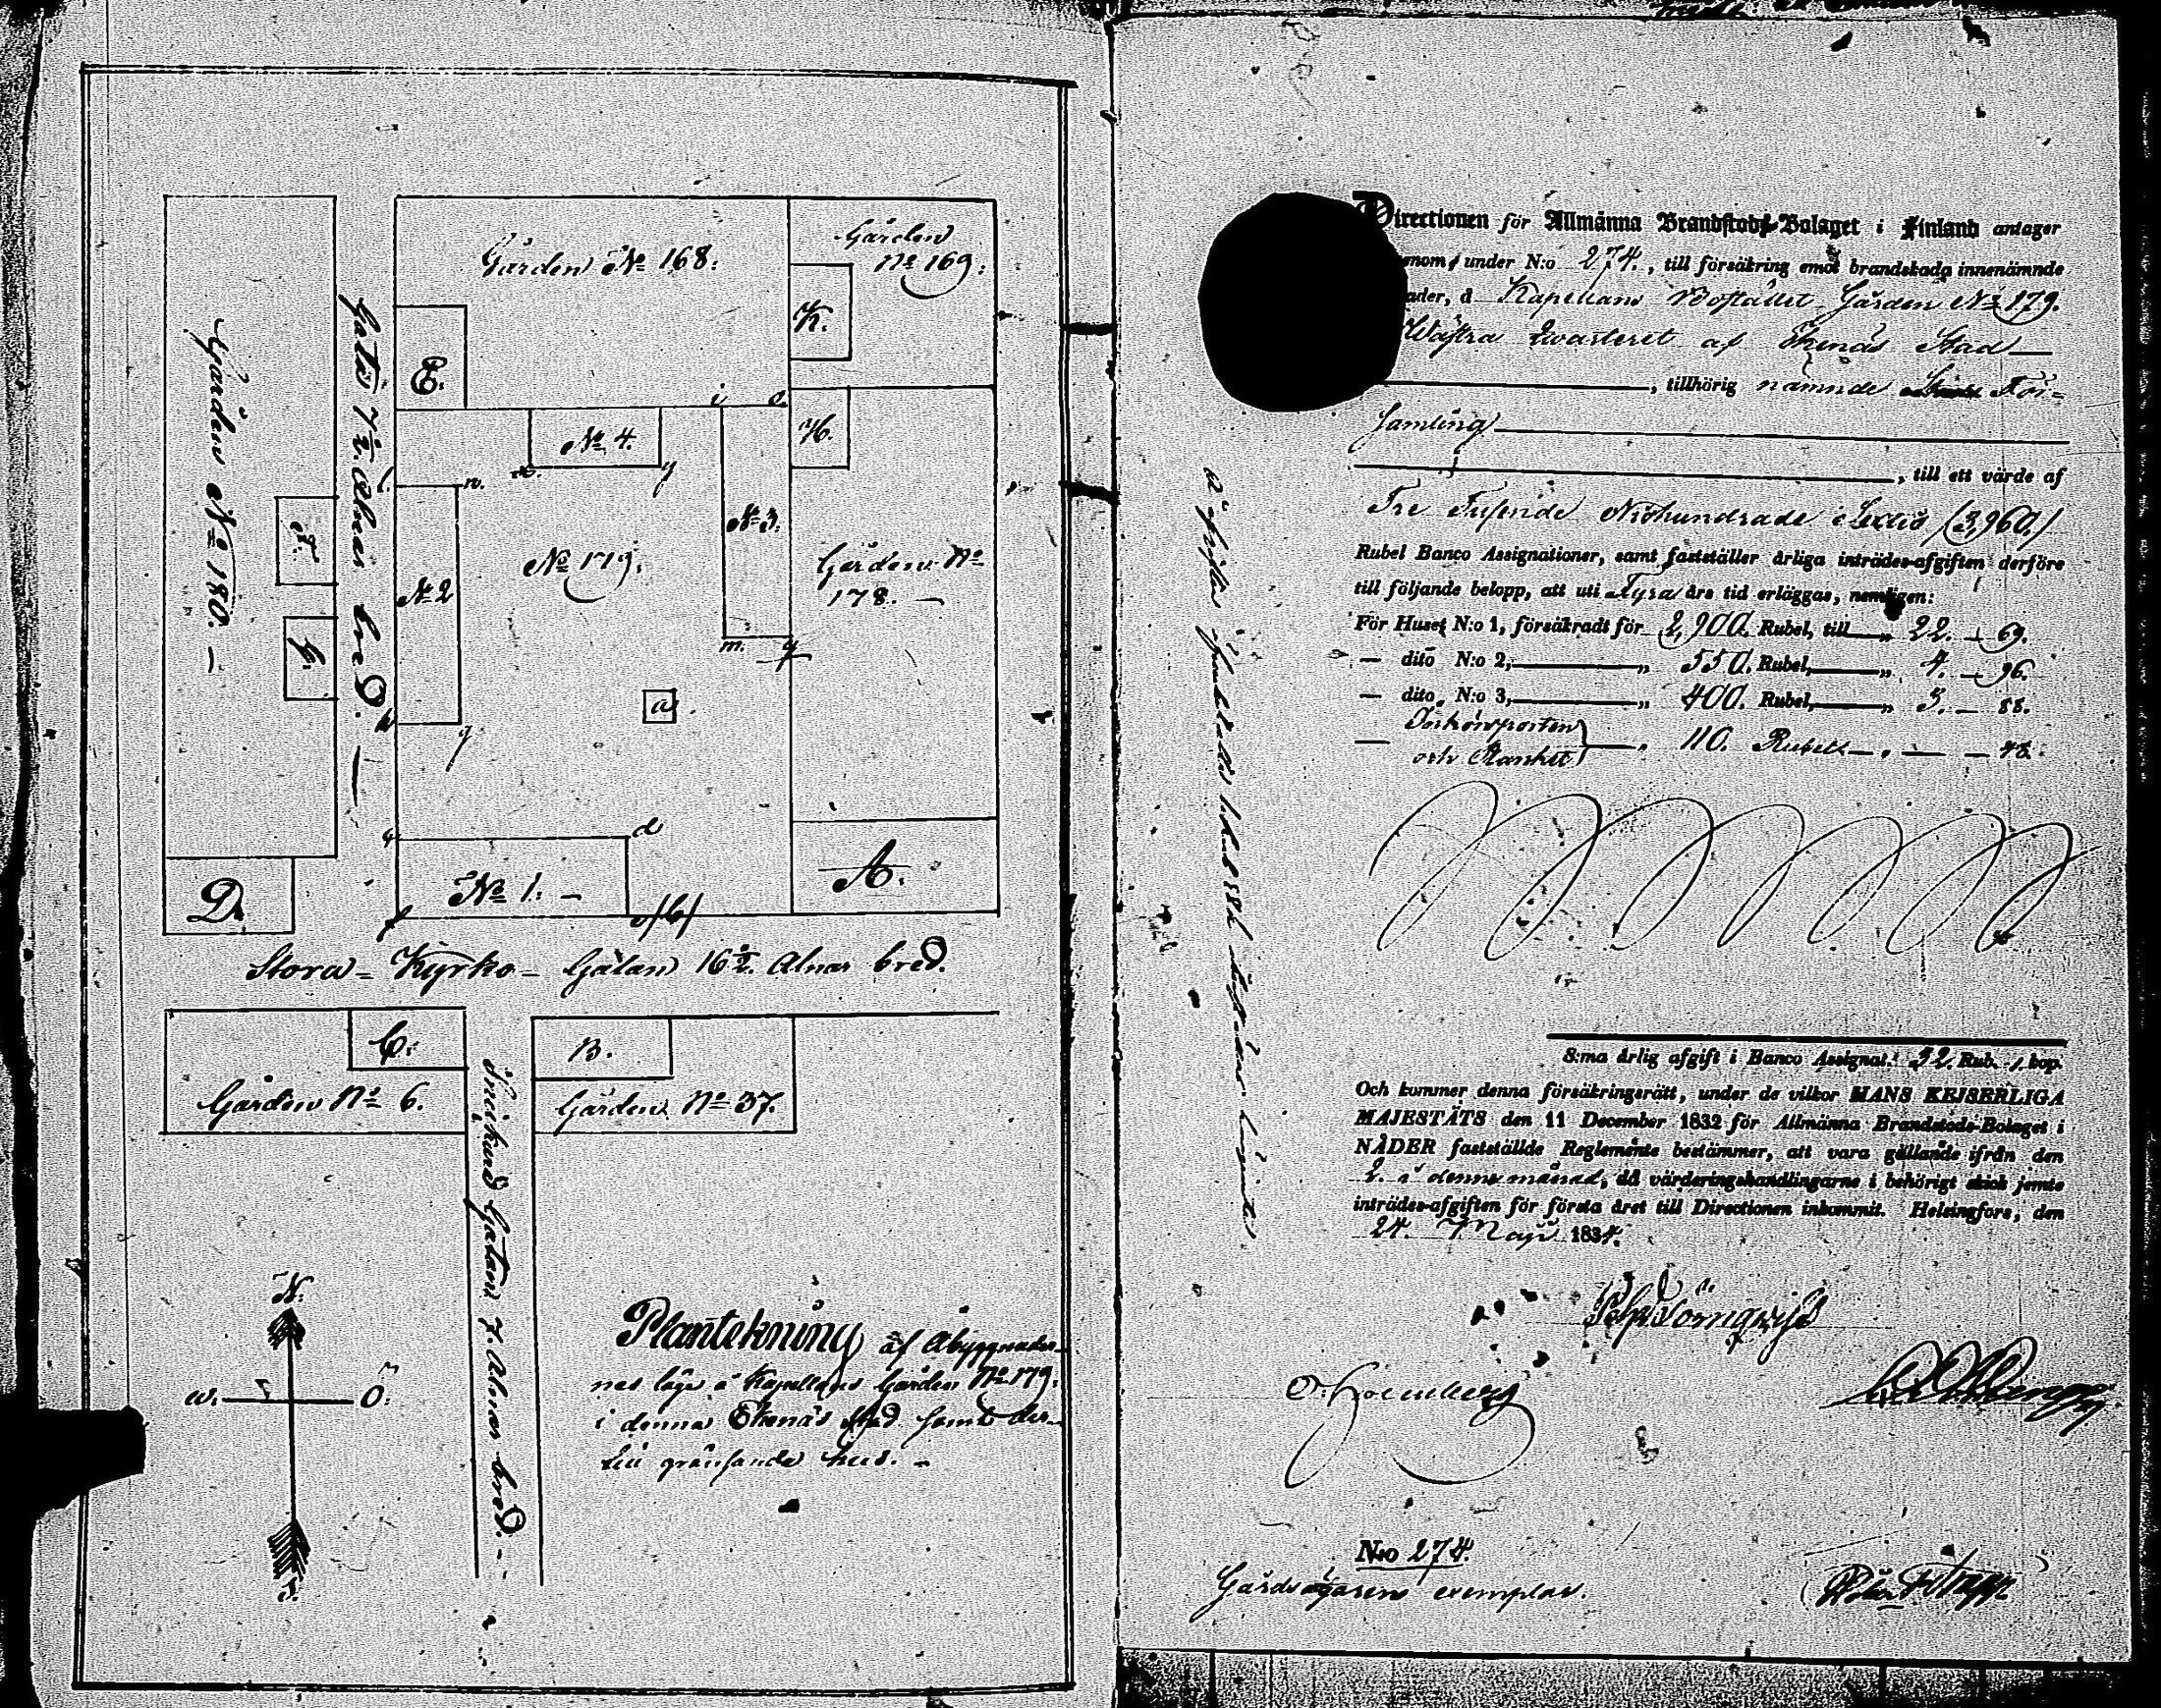 Gården No 168.
Gården
No 169.
K.
E.
H.
i
No 4.
y
No 3.
l.
n.
No 2
No 179.
Gården No
178.
m.
q
a
Gården No 180.
Gata 7½ Alnar bred.
F.
G.
q
d
No 1.
A.
D.
Stora Kyrko Gatan 16½ Alnar bred.
C.
B.
Gården No 6.
Gården No 37.
Gatan 7. Alnar bred.
N.
W.
O.
S.
Plantekning af Åbyggnader-
nas läge å Kapellans Gården No 179.
i denna Ekenäs Stad samt der-
till gränsande hus.
Directionen för Allmänna Brandstods-Bolaget i Finland antager
under N:o 274., till försäkring emot brandskada innenämnde
å Kapellans Bostället Gården No 179.
Wästra Quarteret af Ekenäs Stad
, tillhörig nämnde För-
samling
, till ett värde af
Tre Tusende Niohundrade Sextio (3,960.)
Rubel Banco Assignationer, samt fastställer årliga inträdes-afgiften derföre
till följande belopp, att uti Fyra års tid erläggas, nemligen:
För Huset N:o 1, försäkradt för 2,900. Rubel, till „ 22. – 69.
— dito N:o 2, „ 550. Rubel, „ 4. – 96.
— dito N:o 3, „ 400. Rubel, „ 3. – 88.
— Inkörsporten
och Planket „ 110. Rubel — „ — – 48.
S:ma årlig afgift i Banco Assignat.: 32. Rub. 1 kop.
Och kommer denna försäkringsrätt, under de vilkor HANS KEJSERLIGA
MAJESTÄTS den 11 December 1832 för Allmänna Brandstods-Bolaget i
NÅDER fastställde Reglemente bestämmer, att vara gällande ifrån den
2. i denne månad, då värderingshandlingarne i behörigt skick jemte
inträdes-afgiften för första året till Directionen inkommit. Helsingfors, den
24. Maji 1834.
N:o 274.
Gårdsägarens exemplar.